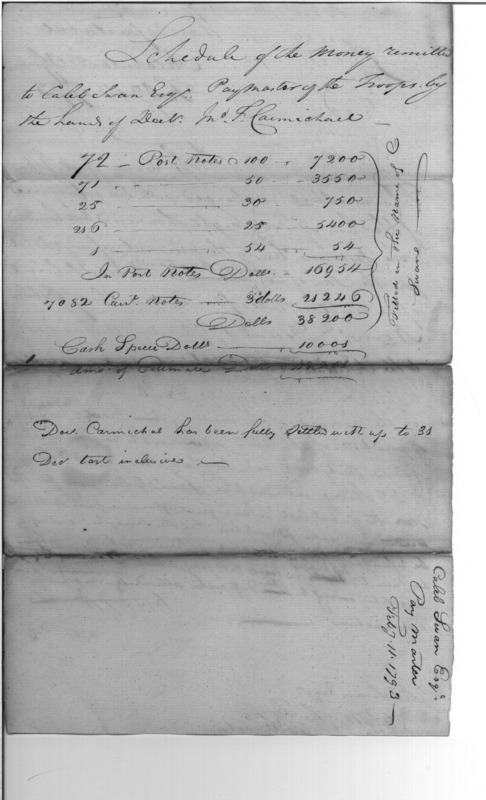 Schedule of the Money remitted
to Caleb Swan Esqr. Paymaster of the Troops by
the hands of Doctr. Jno. F. Carmichael —
72 — Post Notes 100 " 7200
71 " 50 — 3550
25 30 " 750
216 25 " 5400
1 54 " 54
In Post Notes Dolls. - 16954
7082 Notes 3 dolls 21246
Dolls 38200
Cash Specie Dolls — 10001
Amo. of Dolls
Filled in the Name of
Swan
Doct. Carmichal has been fully settled with up to 31
Decr. last inclusive —
Caleb Swan Esqr.
Pay Master
Feby. 11. 1793 —